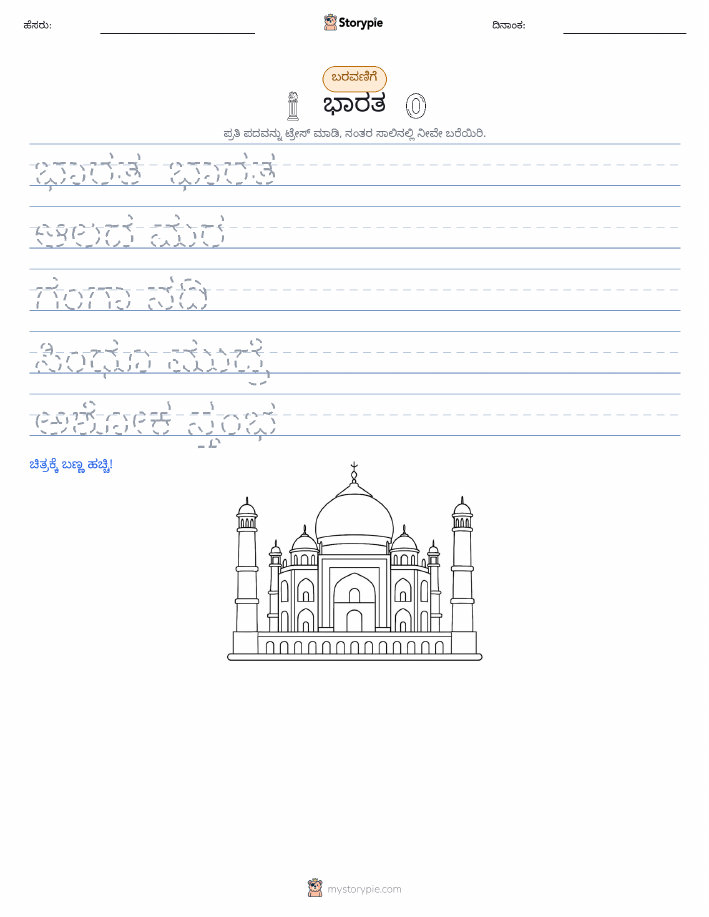 ಹೆಸರು:
Storypie
ದಿನಾಂಕ:
ಬರವಣಿಗೆ
ಭಾರತ
ಪ್ರತಿ ಪದವನ್ನು ಟ್ರೇಸ್ ಮಾಡಿ, ನಂತರ ಸಾಲಿನಲ್ಲಿ ನೀವೇ ಬರೆಯಿರಿ.
ಭಾರತ ಭಾರತ
ಆಲದ ಮರ
ಗಂಗಾ ನದಿ
ಸಿಂಧೂ ಮುದ್ರೆ
ಅಶೋಕ ಸ್ತಂಭ
ಚಿತ್ರಕ್ಕೆ ಬಣ್ಣ ಹಚ್ಚಿ!
mystorypie.com